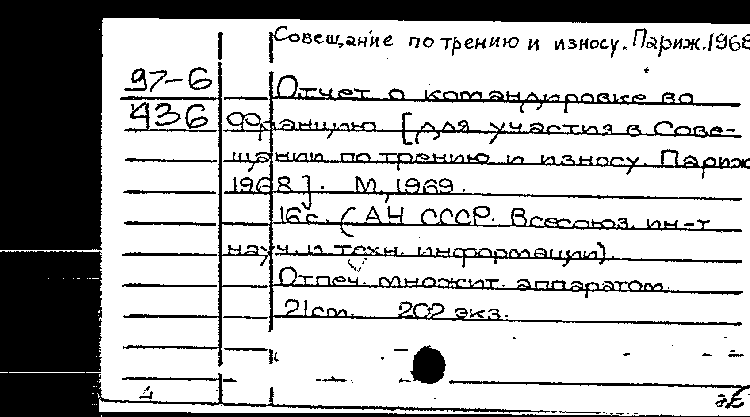 Совещание по трению и износу. Париж. 1968
97-6
436
Отчет о командировке во
Францию [для участия в Сове-
щании по трению и износу. Париж
1968]. М., 1969.
16 с. (АН СССР. Всесоюз. ин-т
науч. и техн. информации).
Отпеч. множит. аппаратом
21 см. 202 экз.
4